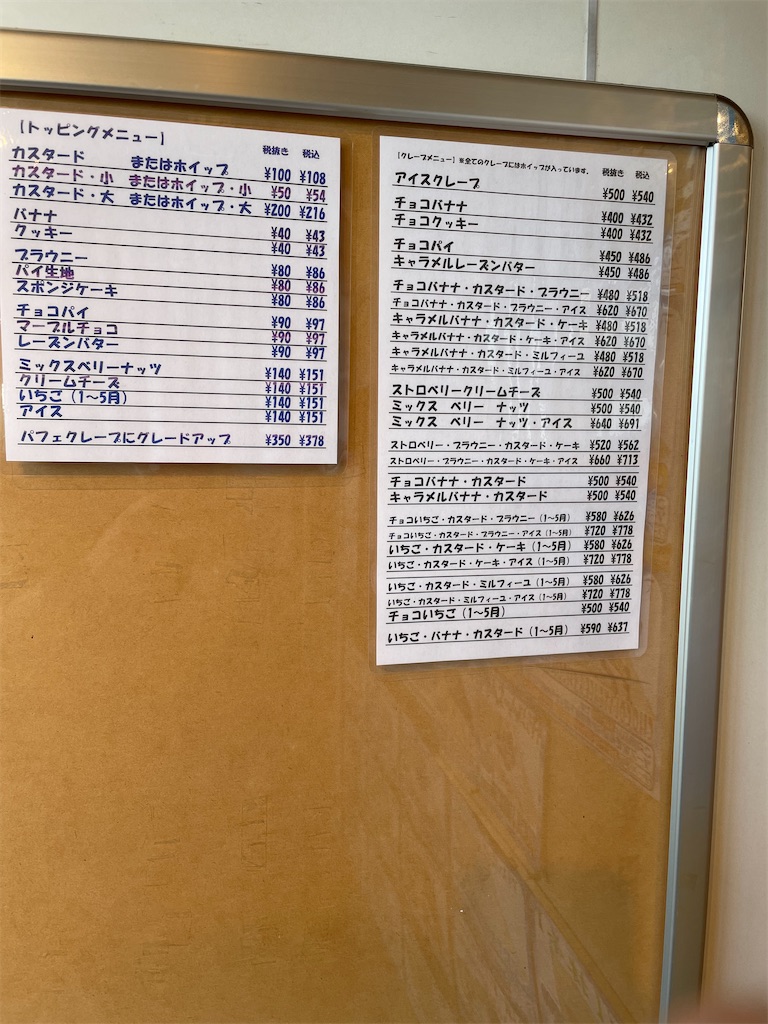 【トッピングメニュー】 税抜き 税込
カスタード またはホイップ ¥100 ¥108
カスタード・小 またはホイップ・小 ¥50 ¥54
カスタード・大 またはホイップ・大 ¥200 ¥216
バナナ ¥40 ¥43
クッキー ¥40 ¥43
ブラウニー ¥80 ¥86
パイ生地 ¥80 ¥86
スポンジケーキ ¥80 ¥86
チョコパイ ¥90 ¥97
マーブルチョコ ¥90 ¥97
レーズンバター ¥90 ¥97
ミックスベリーナッツ ¥140 ¥151
クリームチーズ ¥140 ¥151
いちご(1~5月) ¥140 ¥151
アイス ¥140 ¥151
パフェクレープにグレードアップ ¥350 ¥378
【クレープメニュー】※全てのクレープにはホイップが入っています。 税抜き 税込
アイスクレープ ¥500 ¥540
チョコバナナ ¥400 ¥432
チョコクッキー ¥400 ¥432
チョコパイ ¥450 ¥486
キャラメルレーズンバター ¥450 ¥486
チョコバナナ・カスタード・ブラウニー ¥480 ¥518
チョコバナナ・カスタード・ブラウニー・アイス ¥620 ¥670
キャラメルバナナ・カスタード・ケーキ ¥480 ¥518
キャラメルバナナ・カスタード・ケーキ・アイス ¥620 ¥670
キャラメルバナナ・カスタード・ミルフィーユ ¥480 ¥518
キャラメルバナナ・カスタード・ミルフィーユ・アイス ¥620 ¥670
ストロベリークリームチーズ ¥500 ¥540
ミックス ベリー ナッツ ¥500 ¥540
ミックス ベリー ナッツ・アイス ¥640 ¥691
ストロベリー・ブラウニー・カスタード・ケーキ ¥520 ¥562
ストロベリー・ブラウニー・カスタード・ケーキ・アイス ¥660 ¥713
チョコバナナ・カスタード ¥500 ¥540
キャラメルバナナ・カスタード ¥500 ¥540
チョコいちご・カスタード・ブラウニー(1~5月) ¥580 ¥626
チョコいちご・カスタード・ブラウニー・アイス(1~5月) ¥720 ¥778
いちご・カスタード・ケーキ(1~5月) ¥580 ¥626
いちご・カスタード・ケーキ・アイス(1~5月) ¥720 ¥778
いちご・カスタード・ミルフィーユ(1~5月) ¥580 ¥626
いちご・カスタード・ミルフィーユ・アイス(1~5月) ¥720 ¥778
チョコいちご(1~5月) ¥500 ¥540
いちご・バナナ・カスタード(1~5月) ¥590 ¥637